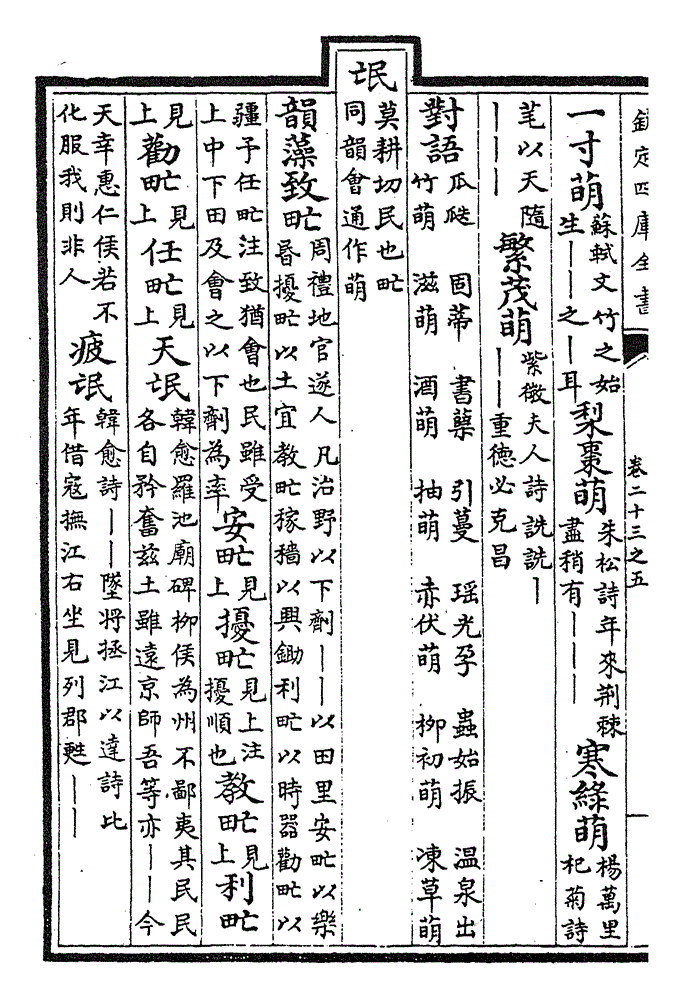 欽定四庫全書
卷二十三之五
一寸萌 蘇軾文竹之始生——之—耳 梨棗萌 朱松詩年來荆棘盡稍有——— 寒綠萌 楊萬里杞菊詩
芼以天隨——— 繁茂萌 紫微夫人詩詵詵———重德必克昌
對語 瓜瓞 固蒂 書蘖 引蔓 瑶光孕 蟲始振 溫泉出
竹萌 滋萌 酒萌 抽萌 赤伏萌 柳初萌 凍草萌
氓 莫耕切民也甿同韻會通作萌
韻藻致甿 周禮地官遂人凡治野以下劑——以田里安甿以樂昬擾甿以土宜教甿稼穡以興鋤利甿以時器勸甿以
疆予任甿注致猶會也民雖受上中下田及會之以下劑為率 安甿 見上 擾甿 見上注擾順也 教甿 見上 利甿
見上 勸甿 見上 任甿 見上 天氓 韓愈羅池廟碑柳侯為州不鄙夷其民民各自矜奮兹土雖遠京師吾等亦——今
天幸惠仁侯若不化服我則非人 疲氓 韓愈詩——墜將拯江以達詩比年借寇撫江右坐見列郡甦——